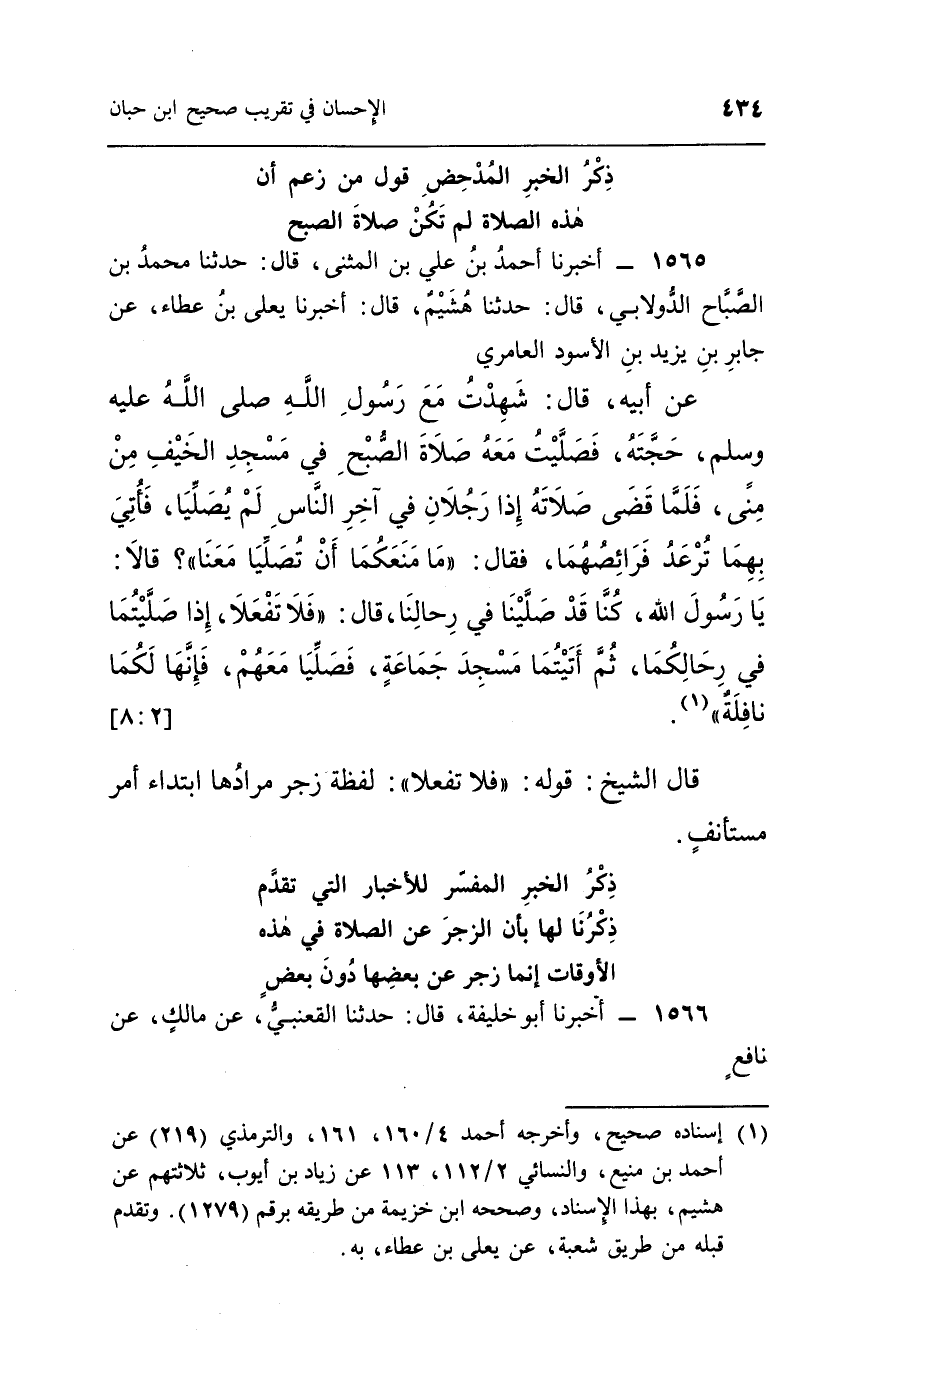 ٤٣٤ الإحسان في تقريب صحيح ابن حبان
ذِكْرُ الخبرِ المُدْحِضِ قول من زعم أن
هٰذه الصلاة لم تَكُنْ صلاةَ الصبح
١٥٦٥ ــ أخبرنا أحمدُ بنُ علي بن المثنى، قال: حدثنا محمدُ بن
الصَّبَّاح الدُّولابي، قال: حدثنا هُشَيْمٌ، قال: أخبرنا يعلى بنُ عطاء، عن
جابرِ بنِ يزيد بنِ الأسود العامري
عن أبيه، قال: شَهِدْتُ مَعَ رَسُولِ اللَّهِ صلى اللَّهُ عليه
وسلم، حَجَّتَهُ، فَصَلَّيْتُ مَعَهُ صَلَاةَ الصُّبْحِ في مَسْجِدِ الخَيْفِ مِنْ
مِنًى، فَلَمَّا قَضَى صَلَاتَهُ إِذا رَجُلَانِ في آخِرِ النَّاسِ لَمْ يُصَلِّيَا، فَأُتِيَ
بِهِمَا تُرْعَدُ فَرَائِصُهُمَا، فقال: «مَا مَنَعَكُمَا أَنْ تُصَلِّيَا مَعَنَا»؟ قالَا:
يَا رَسُولَ الله، كُنَّا قَدْ صَلَّيْنَا في رِحالِنَا، قال: «فَلَا تَفْعَلَا، إِذا صَلَّيْتُمَا
في رِحَالِكُمَا، ثُمَّ أَتَيْتُمَا مَسْجِدَ جَمَاعَةٍ، فَصَلِّيَا مَعَهُمْ، فَإِنَّهَا لَكُمَا
نافِلَةٌ»(١). [٢:٨]
قال الشيخ: قوله: «فلا تفعلا»: لفظة زجر مرادُها ابتداء أمر
مستأنفٍ.
ذِكْرُ الخبرِ المفسِّر للأخبار التي تقدَّم
ذِكْرُنَا لها بأن الزجرَ عن الصلاة في هٰذه
الأوقات إنما زجر عن بعضِها دُونَ بعضٍ
١٥٦٦ ــ أخبرنا أبو خليفة، قال: حدثنا القعنبيُّ، عن مالكٍ، عن
نافعٍ
(١) إسناده صحيح، وأخرجه أحمد ١٦٠/٤، ١٦١، والترمذي (٢١٩) عن
أحمد بن منيع، والنسائي ١١٢/٢، ١١٣ عن زياد بن أيوب، ثلاثتهم عن
هشيم، بهذا الإسناد، وصححه ابن خزيمة من طريقه برقم (١٢٧٩). وتقدم
قبله من طريق شعبة، عن يعلى بن عطاء، به.